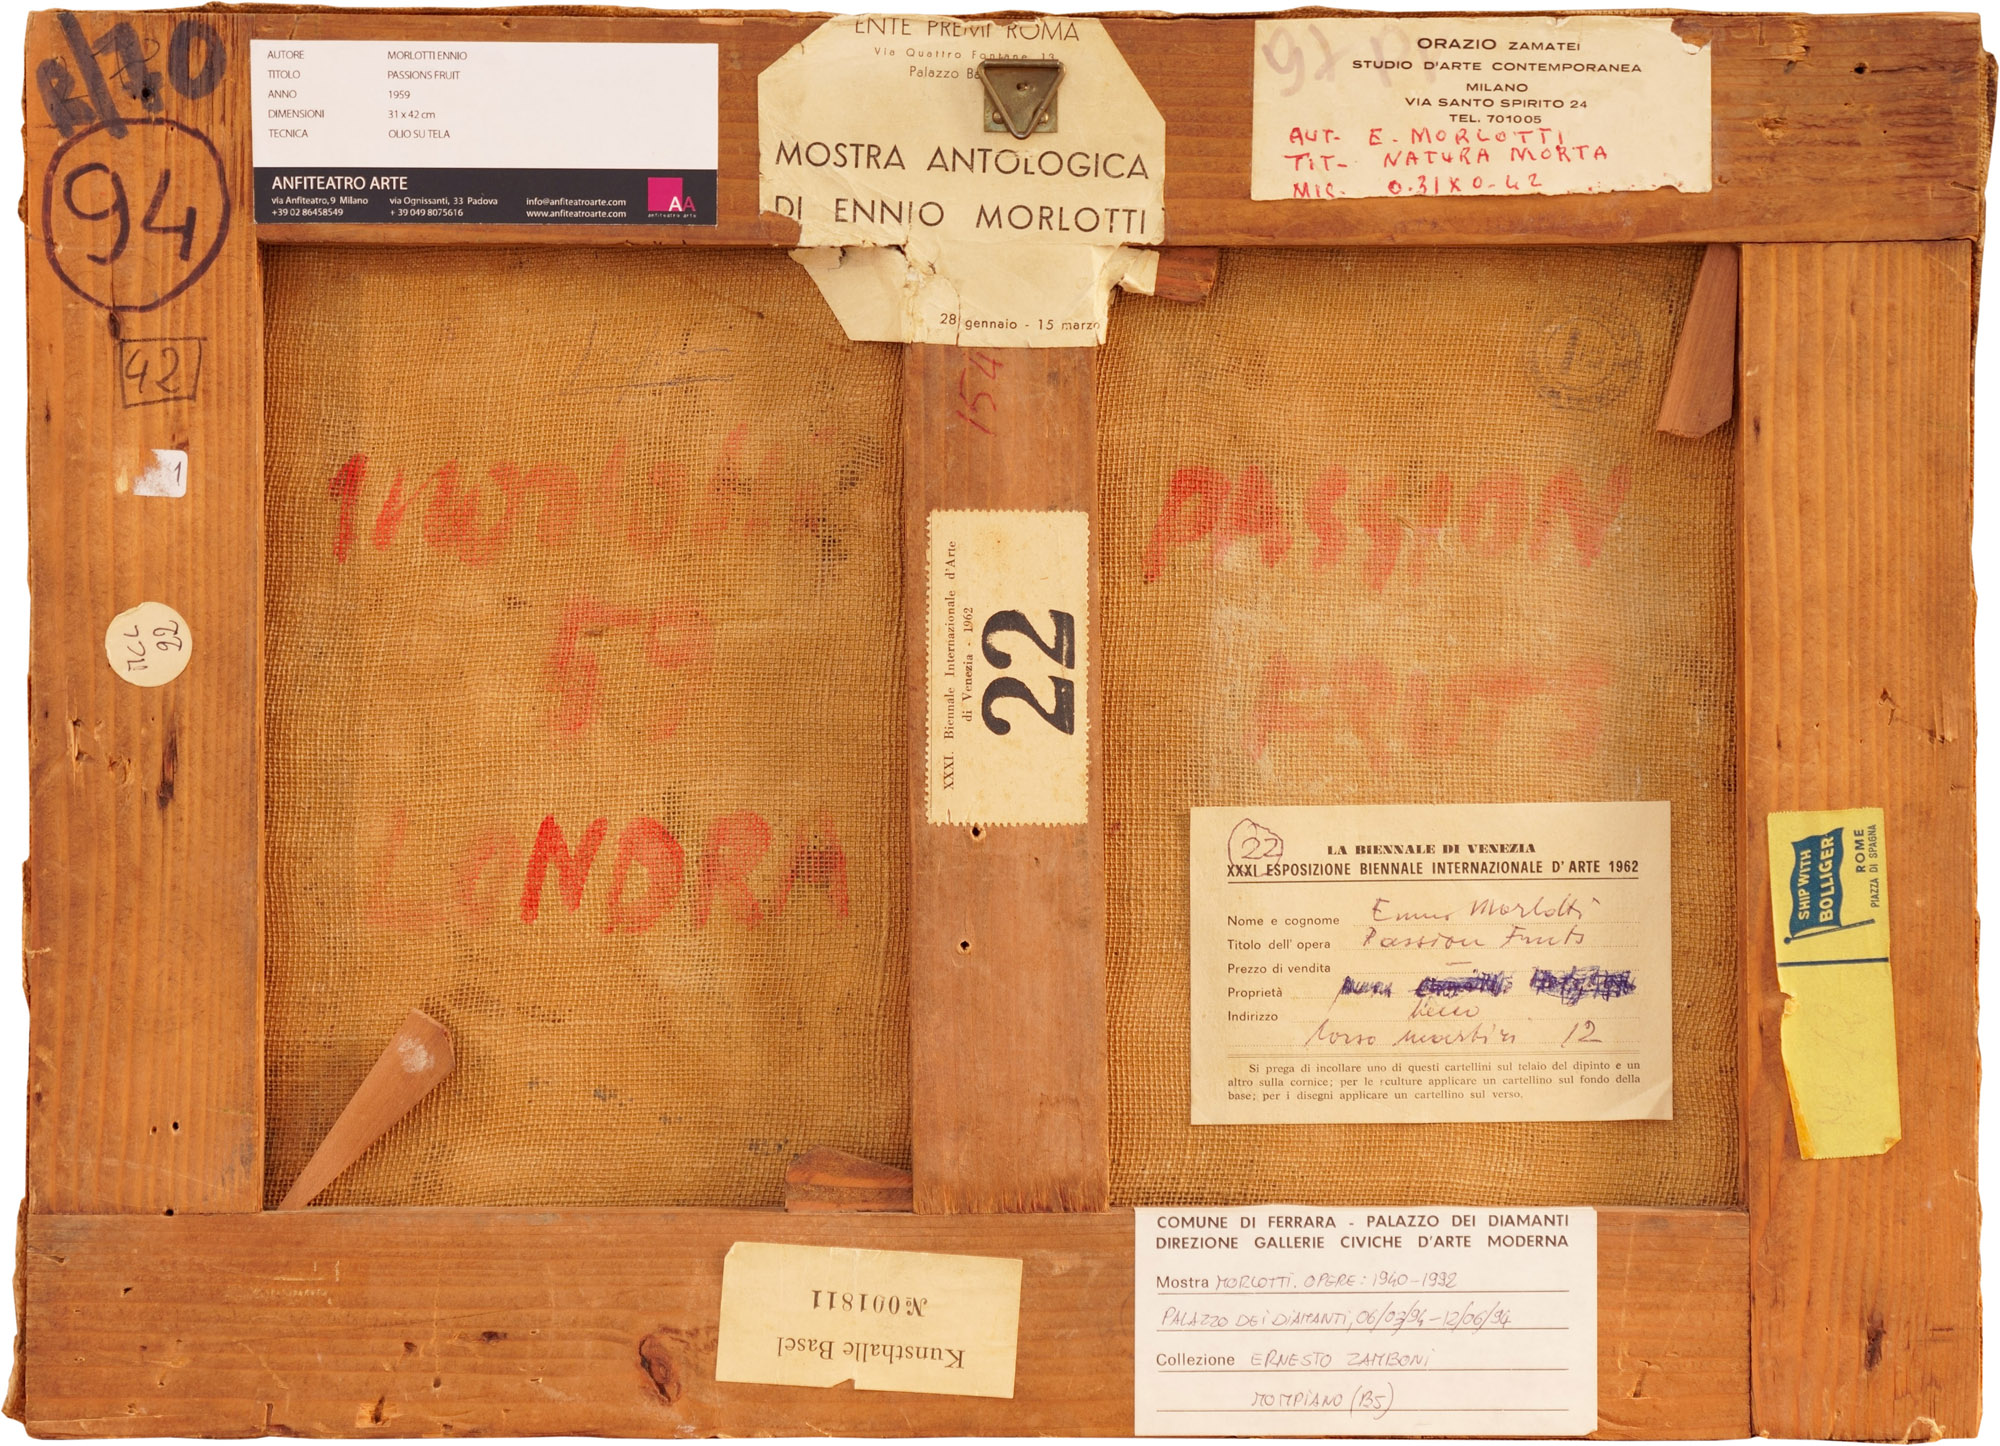 R/70
94
42
1
MCL
92
AUTORE MORLOTTI ENNIO
TITOLO PASSIONS FRUIT
ANNO 1959
DIMENSIONI 31 x 42 cm
TECNICA OLIO SU TELA
ANFITEATRO ARTE
via Anfiteatro, 9 Milano via Ognissanti, 33 Padova info@anfiteatroarte.com
+39 02 86458549 + 39 049 8075616 www.anfiteatroarte.com
AA
anfiteatro arte
ENTE PREMI ROMA
Via Quattro Fontane 13
Palazzo
MOSTRA ANTOLOGICA
DI ENNIO MORLOTTI
28 gennaio - 15 marzo
ORAZIO ZAMATEI
STUDIO D'ARTE CONTEMPORANEA
MILANO
VIA SANTO SPIRITO 24
TEL. 701005
AUT- E. MORLOTTI
TIT- NATURA MORTA
MIS. 0.31X0-42
154
Morlotti
59
LONDRA
PASSION
FRUTS
XXXI. Biennale Internazionale d'Arte
di Venezia - 1962
22
22
LA BIENNALE DI VENEZIA
XXXI ESPOSIZIONE BIENNALE INTERNAZIONALE D'ARTE 1962
Nome e cognome Ennio Morlotti
Titolo dell'opera Passion Fruts
Prezzo di vendita
Proprietà
Indirizzo Lecco
Corso Martiri 12
Si prega di incollare uno di questi cartellini sul telaio del dipinto e un
altro sulla cornice; per le sculture applicare un cartellino sul fondo della
base; per i disegni applicare un cartellino sul verso.
SHIP WITH
BOLLIGER
ROME
PIAZZA DI SPAGNA
Kunsthalle Basel
№ 001811
COMUNE DI FERRARA - PALAZZO DEI DIAMANTI
DIREZIONE GALLERIE CIVICHE D'ARTE MODERNA
Mostra MORLOTTI. OPERE: 1940-1992
PALAZZO DEI DIAMANTI, 06/03/94-12/06/94
Collezione ERNESTO ZAMBONI
MOMPIANO (BS)